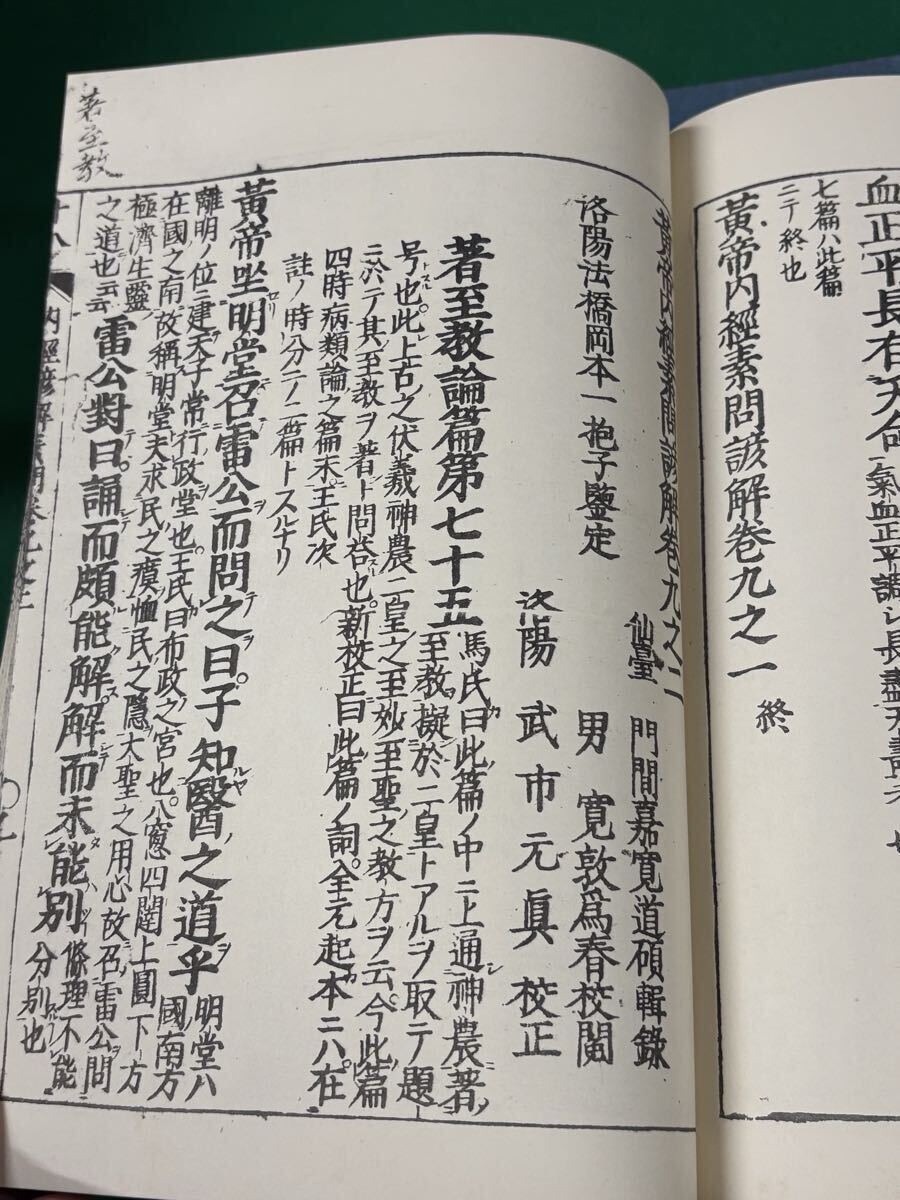 血正平長有天命
氣血正平調レハ長盡天壽
七篇ハ此篇
ニテ終也
黃帝内經素問諺解卷九之一 終
黃帝内經素問諺解卷九之二
仙臺 門間嘉寛道碩輯錄
洛陽法橋岡本一抱子鑒定
男 寛敦爲春校閱
洛陽 武市元眞 校正
著至教論篇第七十五
馬氏曰此篇ノ中ニ上通神農著
至教擬於二皇トアルヲ取テ題
号也此上古之伏羲神農二皇之至妙至聖之教方ヲ云今此篇
ニ於テ其至教ヲ著ト問荅也新校正曰此篇ノ詞全元起本ニハ在
四時病類論之篇末王氏次
註ノ時分ニノ二篇トスルナリ
黃帝坐明堂召雷公而問之曰子知醫之道乎
明堂ハ
國南方
離明ノ位ニ建天子常行政堂也王氏曰布政之宮也八窓四闥上圓下方
在國之南故稱明堂夫求民之瘼恤民之隱大聖之用心故召雷公問
極濟生靈
之道也云云
雷公對曰誦而頗能解解而未能別
條理不能
分別也
著至教
内經諺解素問卷九之二